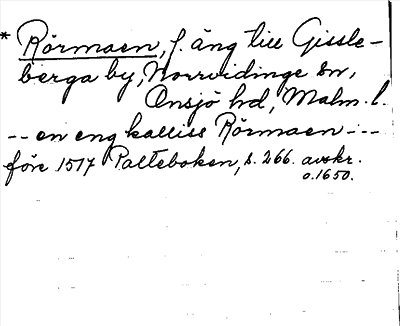 * Rörmaen, f. äng till Gissle-
berga by, Norrvidinge sn,
Onsjö hd, Malm. l.
-- en eng kalliss Rörmaen ---
före 1517 Palteboken, s. 266. avskr.
o. 1650.